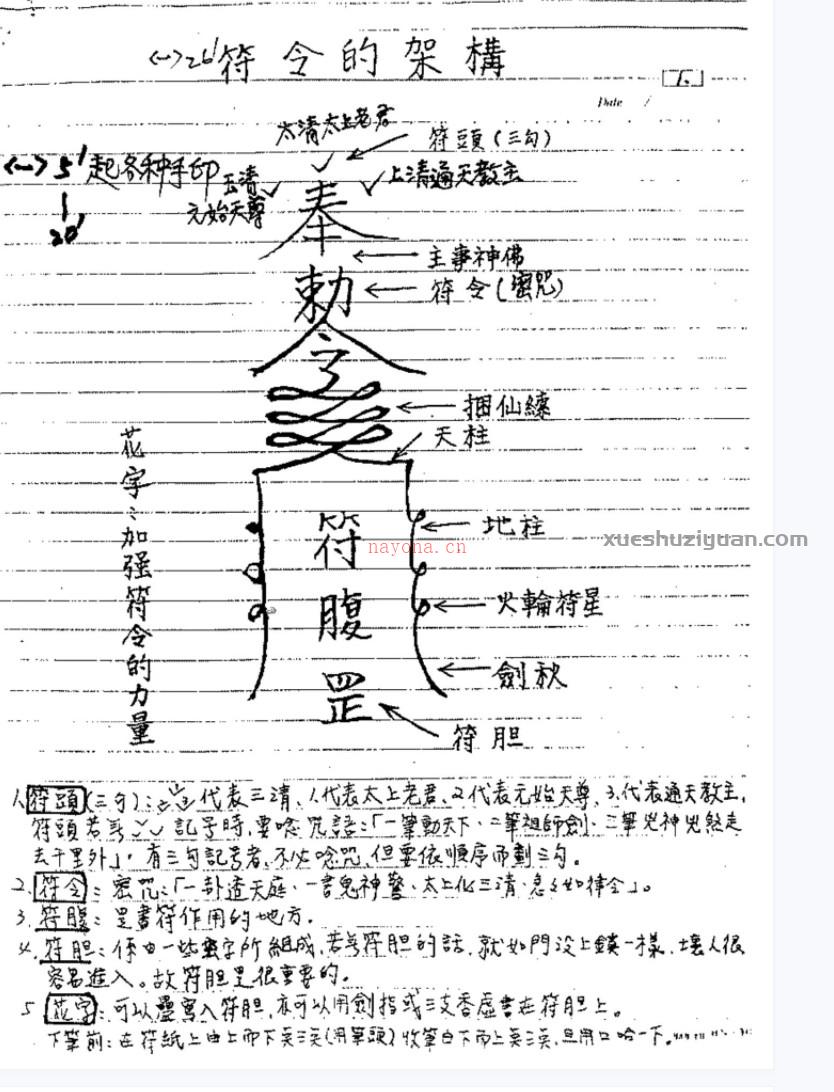 <一>26' 符令的架構
下
Date /
太清太上老君
符頭(三勾)
<一>5' 起各種手印
|
20'
玉清
元始天尊
上清通天教主
奉
主事神佛
勅
符令(密咒)
令
捆仙繩
天柱
花字:加強符令的力量
符
地柱
nayona.cn
xueshuziyuan.com
腹
火輪符星
劍秋
罡
符胆
1.符頭(三勾):代表三清、1.代表太上老君、2.代表元始天尊、3.代表通天教主,
符頭若無記号時,要唸咒語:「一筆動天下、二筆祖師劍、三筆兇神兇煞走
去千里外」,有三勾記号者,不必唸咒,但要依順序而劃三勾。
2.符令:密咒:「一卦透天庭、一書鬼神驚、太上化三清、急急如律令」。
3.符腹:是書符作用的地方。
4.符胆:係由一些字所組成,若無符胆的話,就如門沒上鎖一樣,壞人很
容易進入。故符胆是很重要的。
5.花字:可以疊寫入符胆,亦可以用劍指或三支香虛書在符胆上。
下筆前:在符紙上由上而下(用筆頭)收筆自下而上,且用口哈一下。